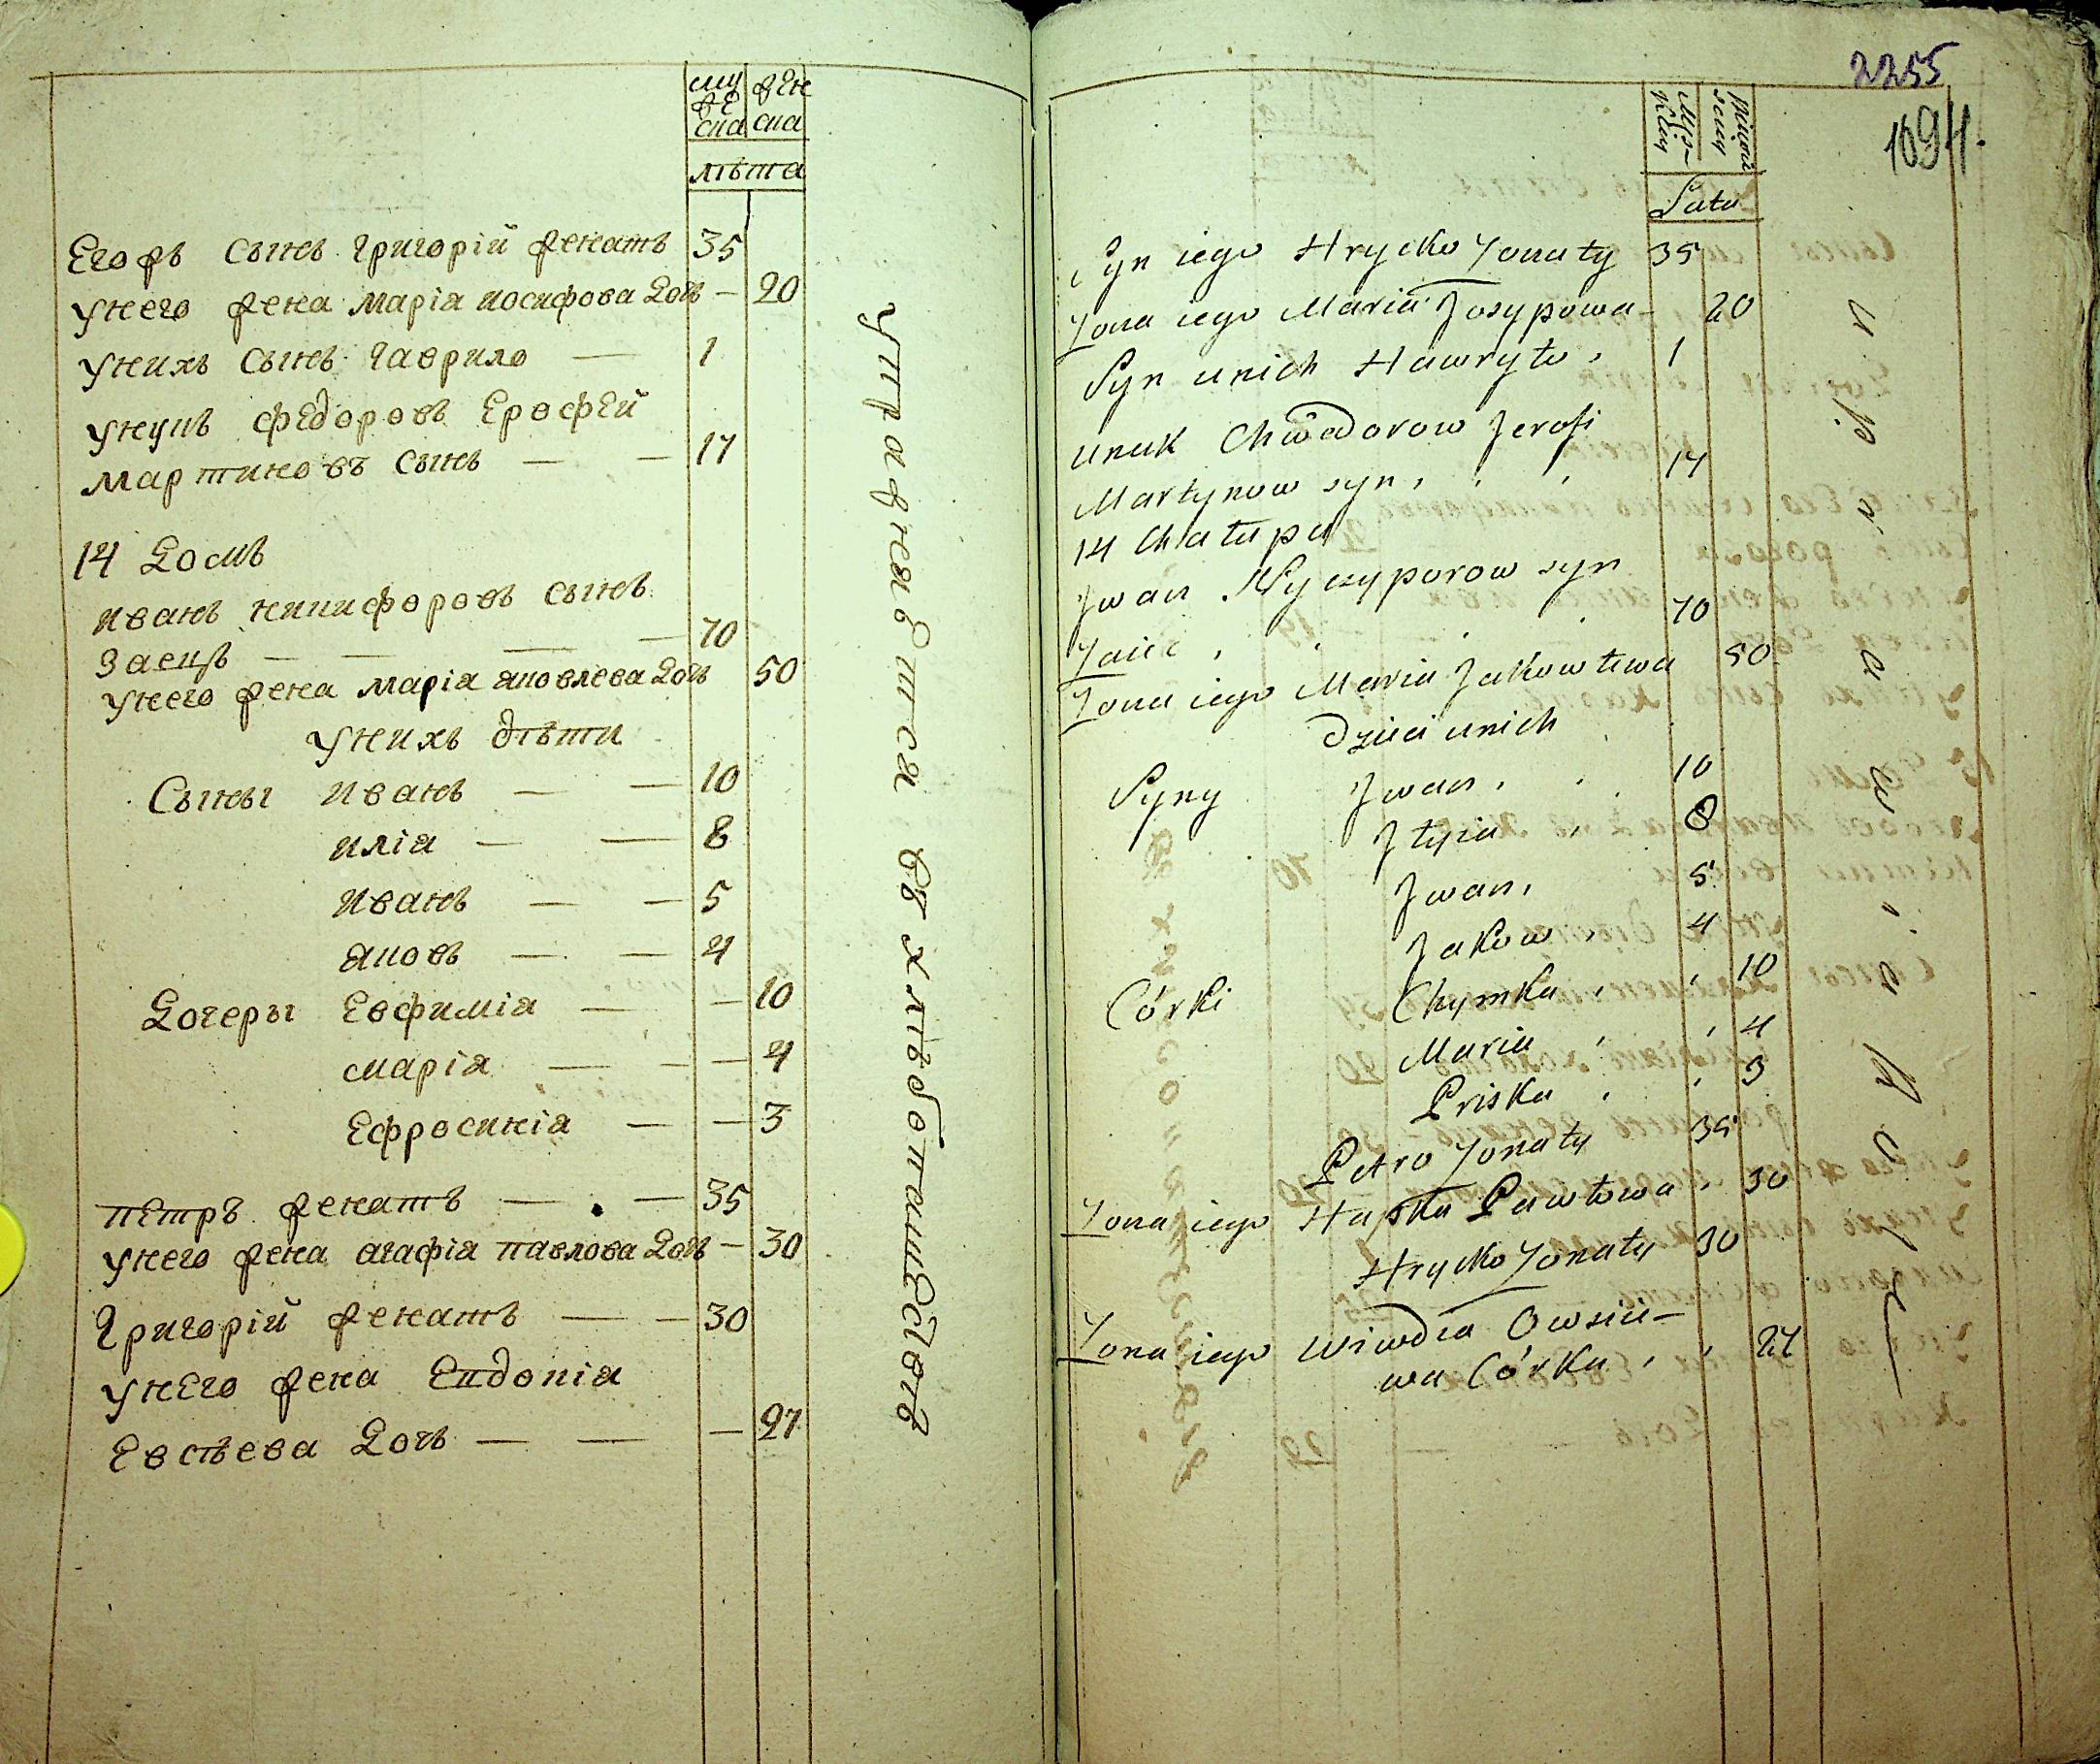 муже ска
жен ска
лѣта
Егоръ сынъ григорій женатъ 35
унего жена марія иосифова дочь — 20
унихъ сынъ гаврило — 1
унукъ федоровъ Ерофей
мартиновъ сынъ — — 17
14 домъ
иванъ никифоровъ сынъ
Заецъ — — — — 70
унего жена марія яковлева дочь 50
унихъ дѣти
Сыны иванъ — — 10
илія — — 8
иванъ — — 5
яковъ — — 4
дочеры Евфимія — — 10
марія — — — 4
Ефросинія — — 3
петръ женатъ — . — 35
унего жена агафія павлова дочь — 30
Григорій женатъ — — 30
унего жена Евдокія
Евсѣева дочь — — — 27
упражняется въ хлѣбопашествѣ
2255
1094.
Męzkiey
Lata
Syn iego Hrycko Żonaty 35
Żona iego Maria Josypowa — 20
Syn unich Hawryło , 1
unuk Chwedorow Jerofi
Martynow syn , , , 17
14 Chałupa
Jwan Nyczyporow syn
Zaiec , , , , 70
Żona iego Maria Jakowlewa 50
Dzieci unich
Syny Jwan , , 10
Jlyia , 8
Jwan , 5
Jakow , 4
Córki Chymka , , 10
Maria , , 4
Priska , , 3
Petro Żonaty 35
Żona iego Hapka Pawłowa , 30
Hrycko Żonaty 30
Żona iego Wiwdia Owsie-
wa Córka , , 27